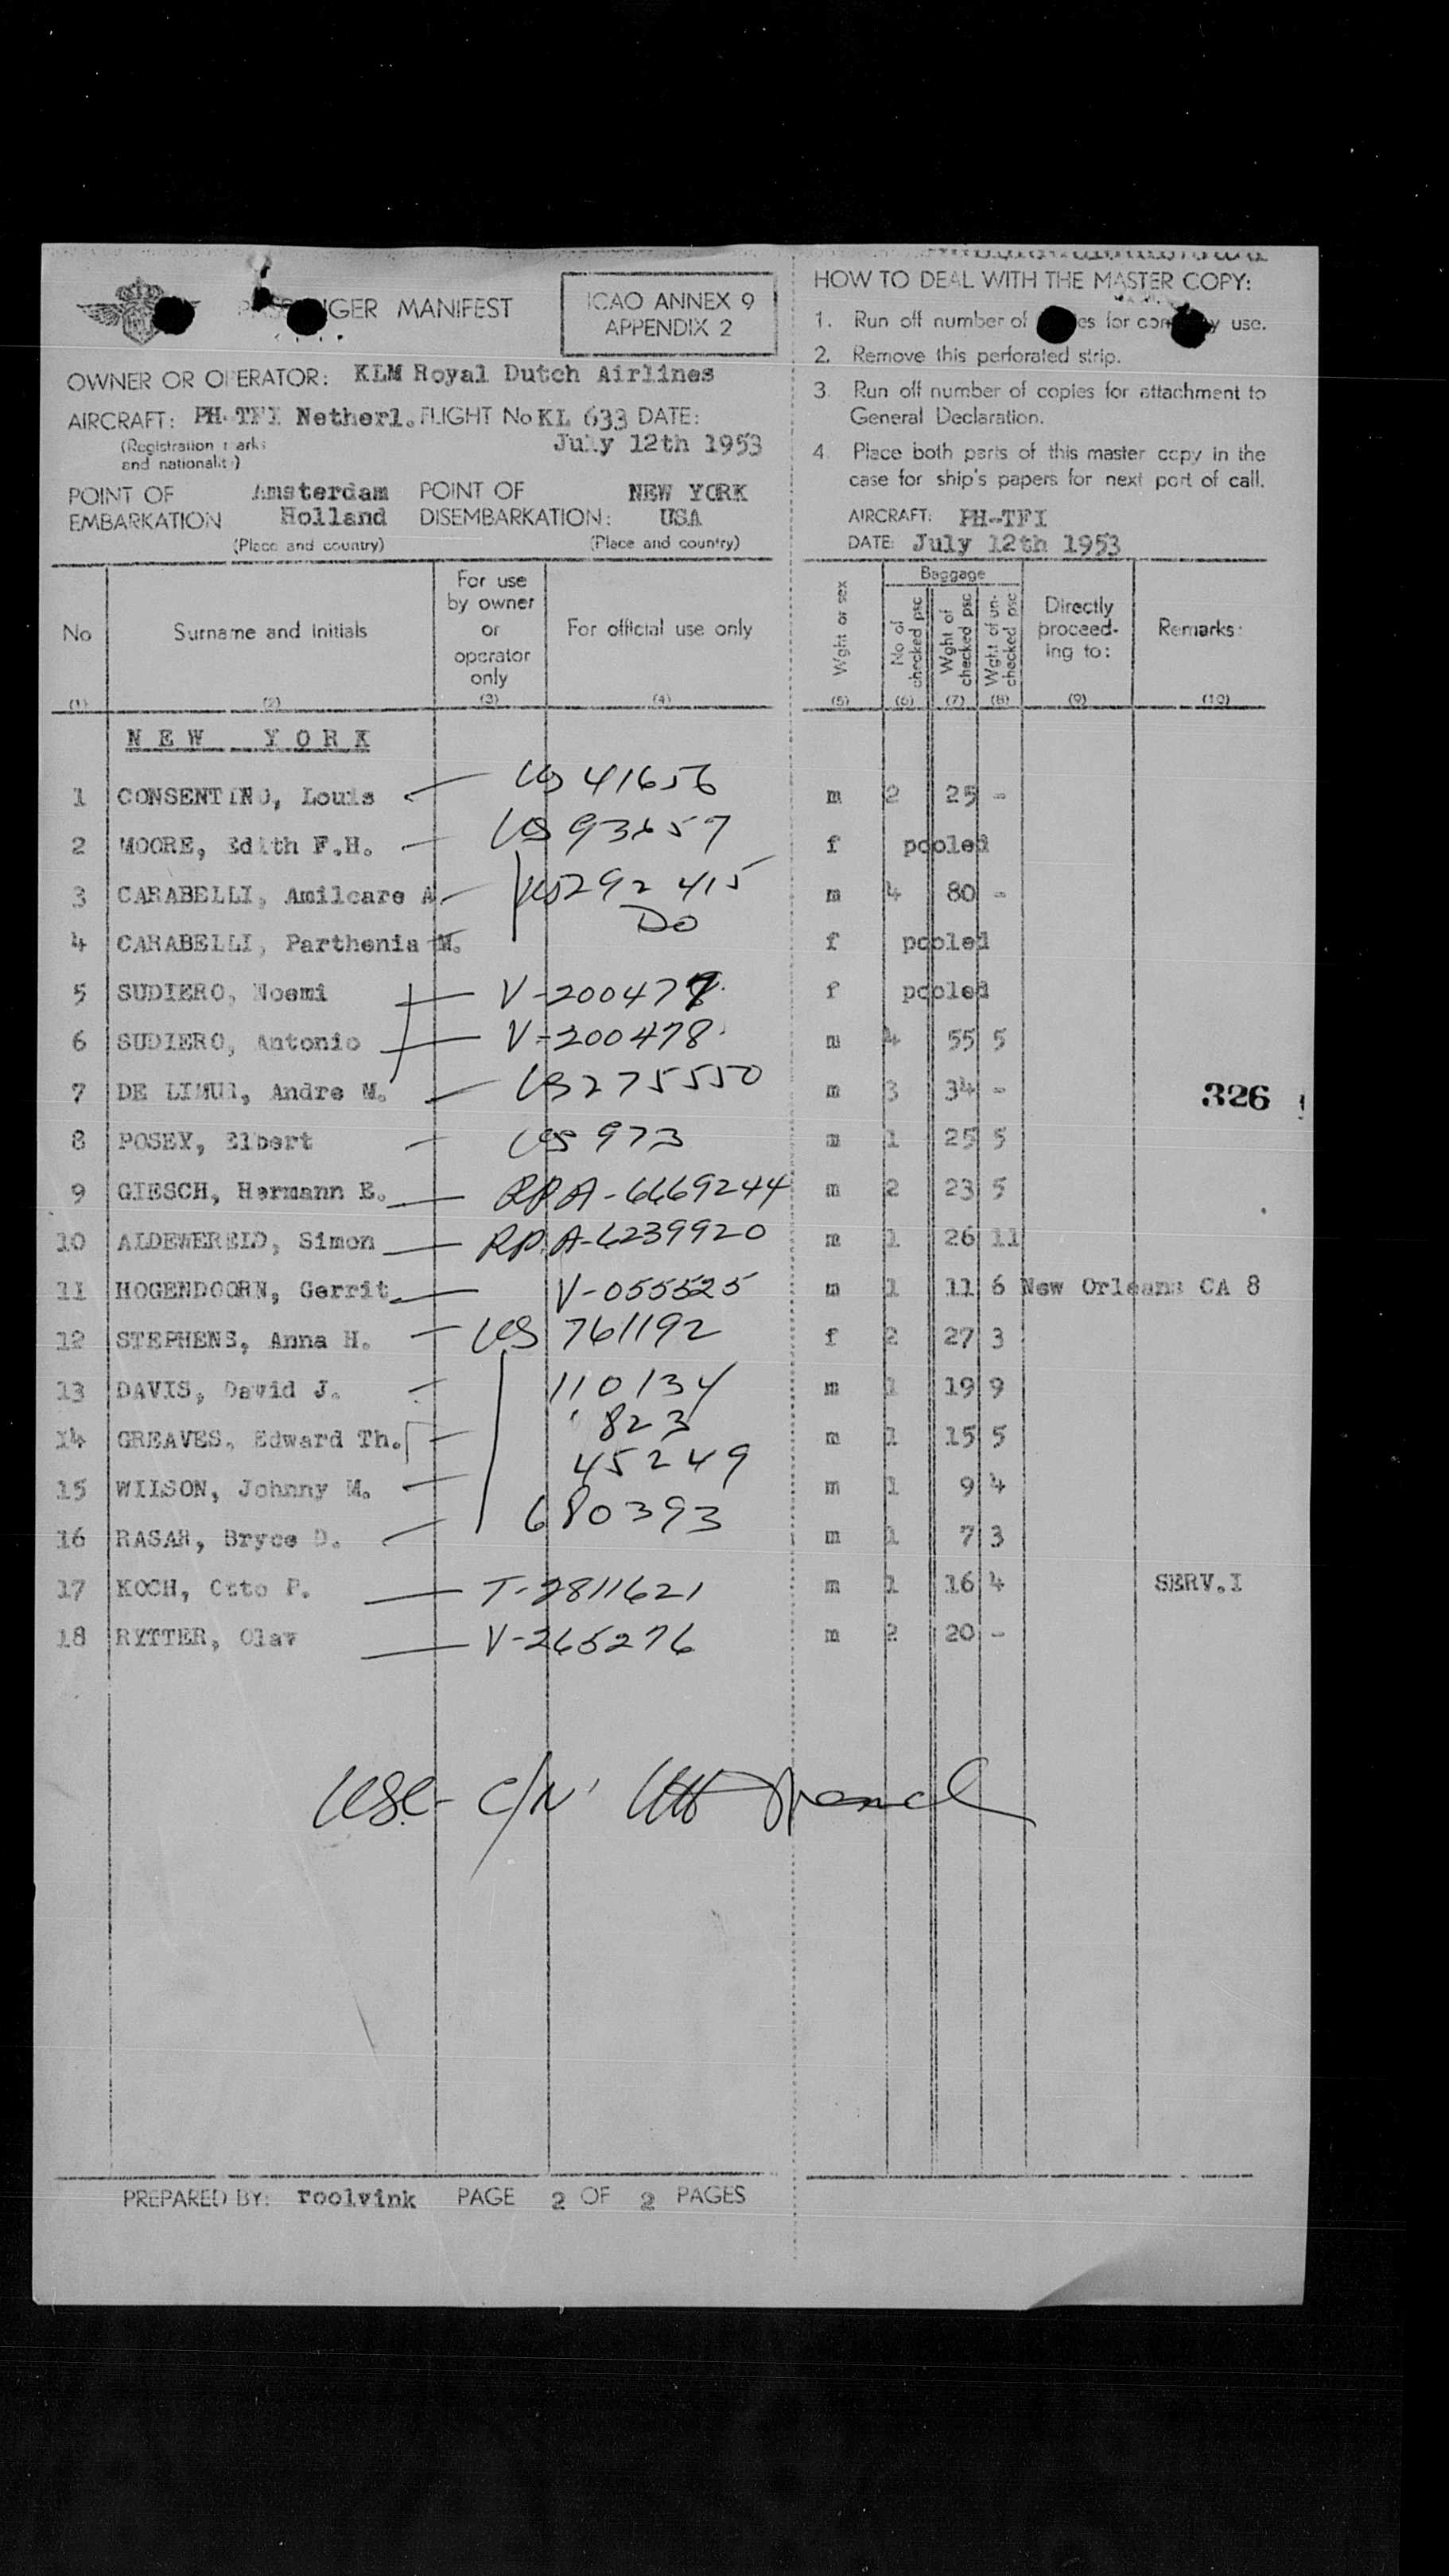 PASSENGER MANIFEST
ICAO ANNEX 9
APPENDIX 2
OWNER OR OPERATOR: KLM Royal Dutch Airlines
AIRCRAFT: PH-TFI Netherl. FLIGHT No KL 633 DATE:
(Registration marks
and nationality)
July 12th 1953
POINT OF EMBARKATION Amsterdam Holland
(Place and country)
POINT OF DISEMBARKATION: NEW YORK USA
(Place and country)
HOW TO DEAL WITH THE MASTER COPY:
1. Run off number of copies for company use.
2. Remove this perforated strip.
3. Run off number of copies for attachment to
General Declaration.
4. Place both parts of this master copy in the
case for ship's papers for next port of call.
AIRCRAFT: PH-TFI
DATE: July 12th 1953
No Surname and Initials For use by owner or operator only For official use only Wght or sex Baggage No of checked psc Wght of checked psc Wght of un-checked psc Directly proceed-ing to: Remarks:
(1) (2) (3) (4) (5) (6) (7) (8) (9) (10)
NEW YORK
1 CONSENTINO, Louis US 41656 m 2 25 -
2 MOORE, Edith F.H. US f pooled
3 CARABELLI, Amilcare A. US 292415 m 4 80 -
4 CARABELLI, Parthenia M. Do f pooled
5 SUDIERO, Noemi V-200477 f pooled
6 SUDIERO, Antonio V-200478 m 4 55 5
7 DE LIMUR, Andre M. US 275550 m 3 34 -
326
8 POSEY, Elbert US 973 m 1 25 5
9 GIESCH, Hermann E. RP.A-6669244 m 2 23 5
10 ALDEWERELD, Simon RP.A-6239920 m 1 26 11
11 HOGENDOORN, Gerrit V-055525 m 1 11 6 New Orleans CA 8
12 STEPHENS, Anna H. US 761192 f 2 27 3
13 DAVIS, David J. 110134 m 1 19 9
14 GREAVES, Edward Th. 823 m 1 15 5
15 WILSON, Johnny M. 45249 m 1 9 4
16 RASAR, Bryce D. 680393 m 1 7 3
17 KOCH, Otto P. T-2811621 m 1 16 4 SERV.I
18 RYTTER, Olav V-265276 m 2 20 -
USC- C/N
PREPARED BY: roolvink PAGE 2 OF 2 PAGES